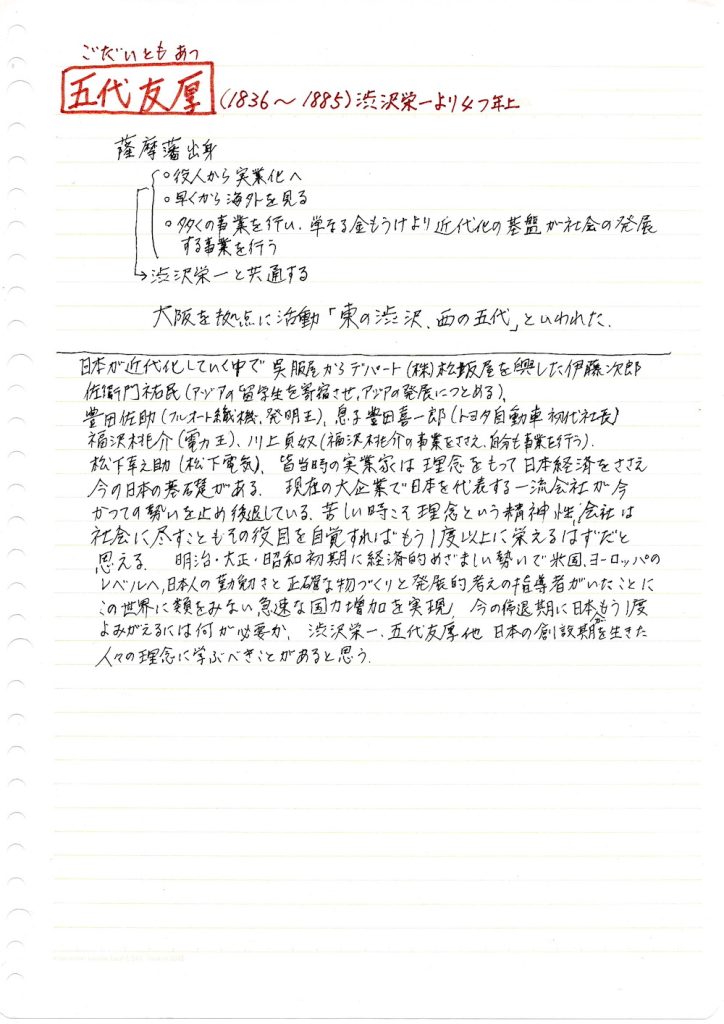 ごだいともあつ
五代友厚(1836〜1885)渋沢栄一より4つ年上
薩摩藩出身
○役人から実業化へ
○早くから海外を見る
○多くの事業を行い、単なる金もうけより近代化の基盤が社会の発展
する事業を行う
→渋沢栄一と共通する
大阪を拠点に活動「東の渋沢、西の五代」といわれた。
日本が近代化していく中で呉服屋からデパート(株)松坂屋を興した伊藤次郎
佐衛門祐民(アジアの留学生を寄宿させ、アジアの発展につとめる)、
豊田佐助(フルオート織機、発明王)、息子豊田喜一郎(トヨタ自動車初代社長)
福沢桃介(電力王)、川上貞奴(福沢桃介の事業をささえ、自分も事業を行う)、
松下幸之助(松下電気)、皆当時の実業家は理念をもって日本経済をささえ
今の日本の基礎がある。現在の大企業で日本を代表する一流会社が今
かつての勢いを止め後退している。苦しい時こそ理念という精神性、会社は
社会に尽すこともその役目を自覚すればもう1度以上に栄えるはずだと
思える。明治・大正・昭和初期に経済的めざましい勢いで米国、ヨーロッパの
レベルへ、日本人の勤勉さと正確な物づくりと発展的考えの指導者がいたことに
この世界に類をみない急速な国力増加を実現、今の停退期に日本がもう1度
よみがえるには何が必要か、渋沢栄一、五代友厚他日本の創設期を生きた
人々の理念に学ぶべきことがあると思う。